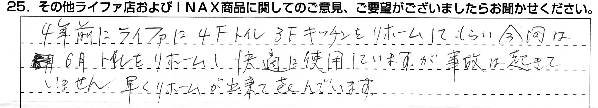 25. その他ライファ店およびINAX商品に関してのご意見、ご要望がございましたらお聞かせください。
4年前にライファに4Fトイレ3Fキッチンをリホームしてもらい今回は
6月トイレをリホームし快適に使用していますが事故は起きて
いません 早くリホームが出来て喜んでいます